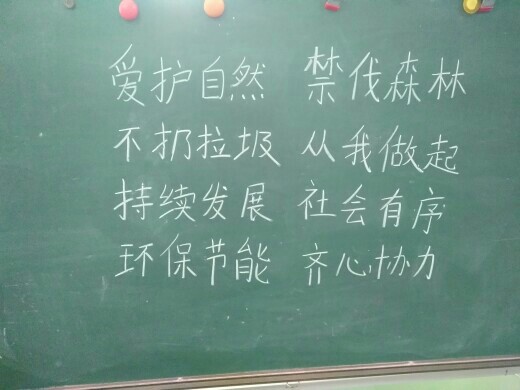 爱护自然 禁伐森林
不扔垃圾 从我做起
持续发展 社会有序
环保节能 齐心协力